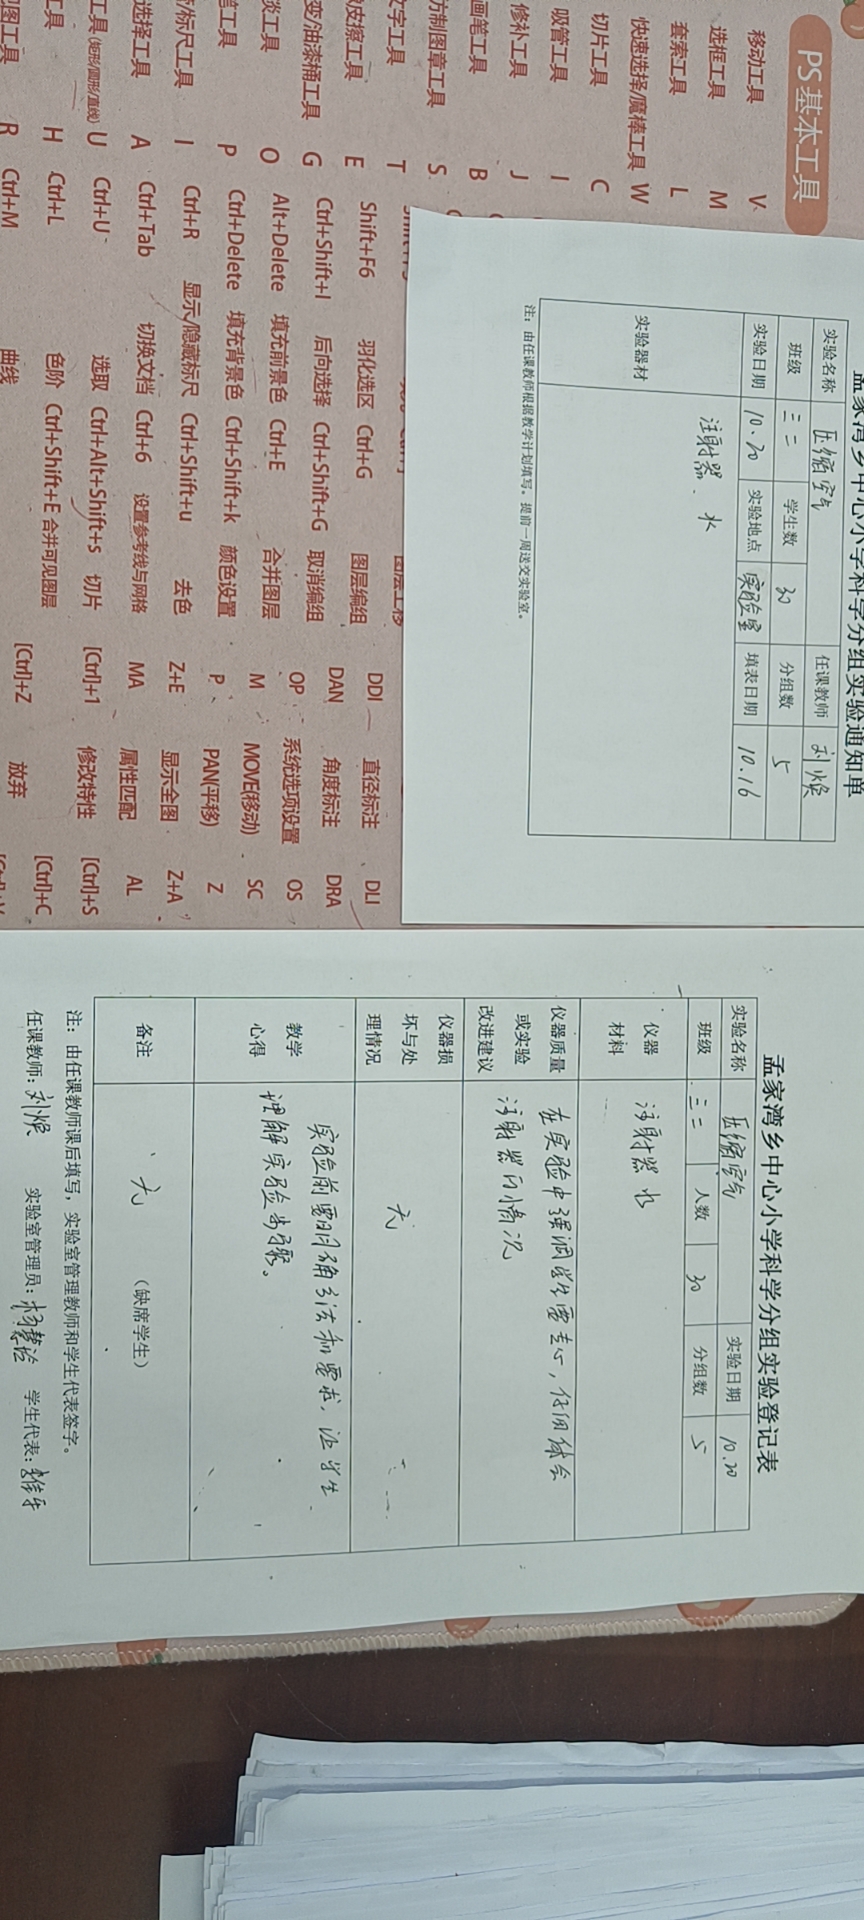 PS基本工具
移动工具 V
选框工具 M
套索工具 L
快速选择/魔棒工具 W
切片工具 C
吸管工具 I
修补工具 J
画笔工具 B
仿制图章工具 S
文字工具 T
皮擦工具 E Shift+F6 羽化选区 Ctrl+G 图层编组 DDI 直径标注 DLI
变/油漆桶工具 G Ctrl+Shift+I 后向选择 Ctrl+Shift+G 取消编组 DAN 角度标注 DRA
淡工具 O Alt+Delete 填充前景色 Ctrl+E 合并图层 OP 系统选项设置 OS
笔工具 P Ctrl+Delete 填充背景色 Ctrl+Shift+k 颜色设置 M MOVE(移动) SC
/标尺工具 I Ctrl+R 显示/隐藏标尺 Ctrl+Shift+u 去色 P PAN(平移) Z
选择工具 A Ctrl+Tab 切换文档 Ctrl+6 设置参考线与网格 Z+E 显示全图 Z+A
工具(矩形/圆形/直线) U Ctrl+U 选取 Ctrl+Alt+Shift+s 切片 MA 属性匹配 AL
工具 H Ctrl+L 色阶 Ctrl+Shift+E 合并可见图层 [Ctrl]+1 修改特性 [Ctrl]+S
图工具 R Ctrl+M 曲线 [Ctrl]+Z 放弃 [Ctrl]+C
孟家湾乡中心小学科学分组实验通知单
实验名称 压缩空气 任课教师 刘焕
班级 三二 学生数 30 分组数 5
实验日期 10.20 实验地点 实验室 填表日期 10.16
实验器材 注射器、水
注：由任课教师根据教学计划填写。提前一周送交实验室。
孟家湾乡中心小学科学分组实验登记表
实验名称 压缩空气 实验日期 10.20
班级 三二 人数 30 分组数 5
仪器材料 注射器 水
仪器质量或实验改进建议 在实验中强调学生要专心，仔细体会
注射器的情况
仪器损坏与处理情况 无
教学心得 实验前要明确方法和要求，让学生
理解实验步骤。
备注 无 （缺席学生）
注：由任课教师课后填写，实验室管理教师和学生代表签字。
任课教师：刘焕 实验室管理员：杨 学生代表：